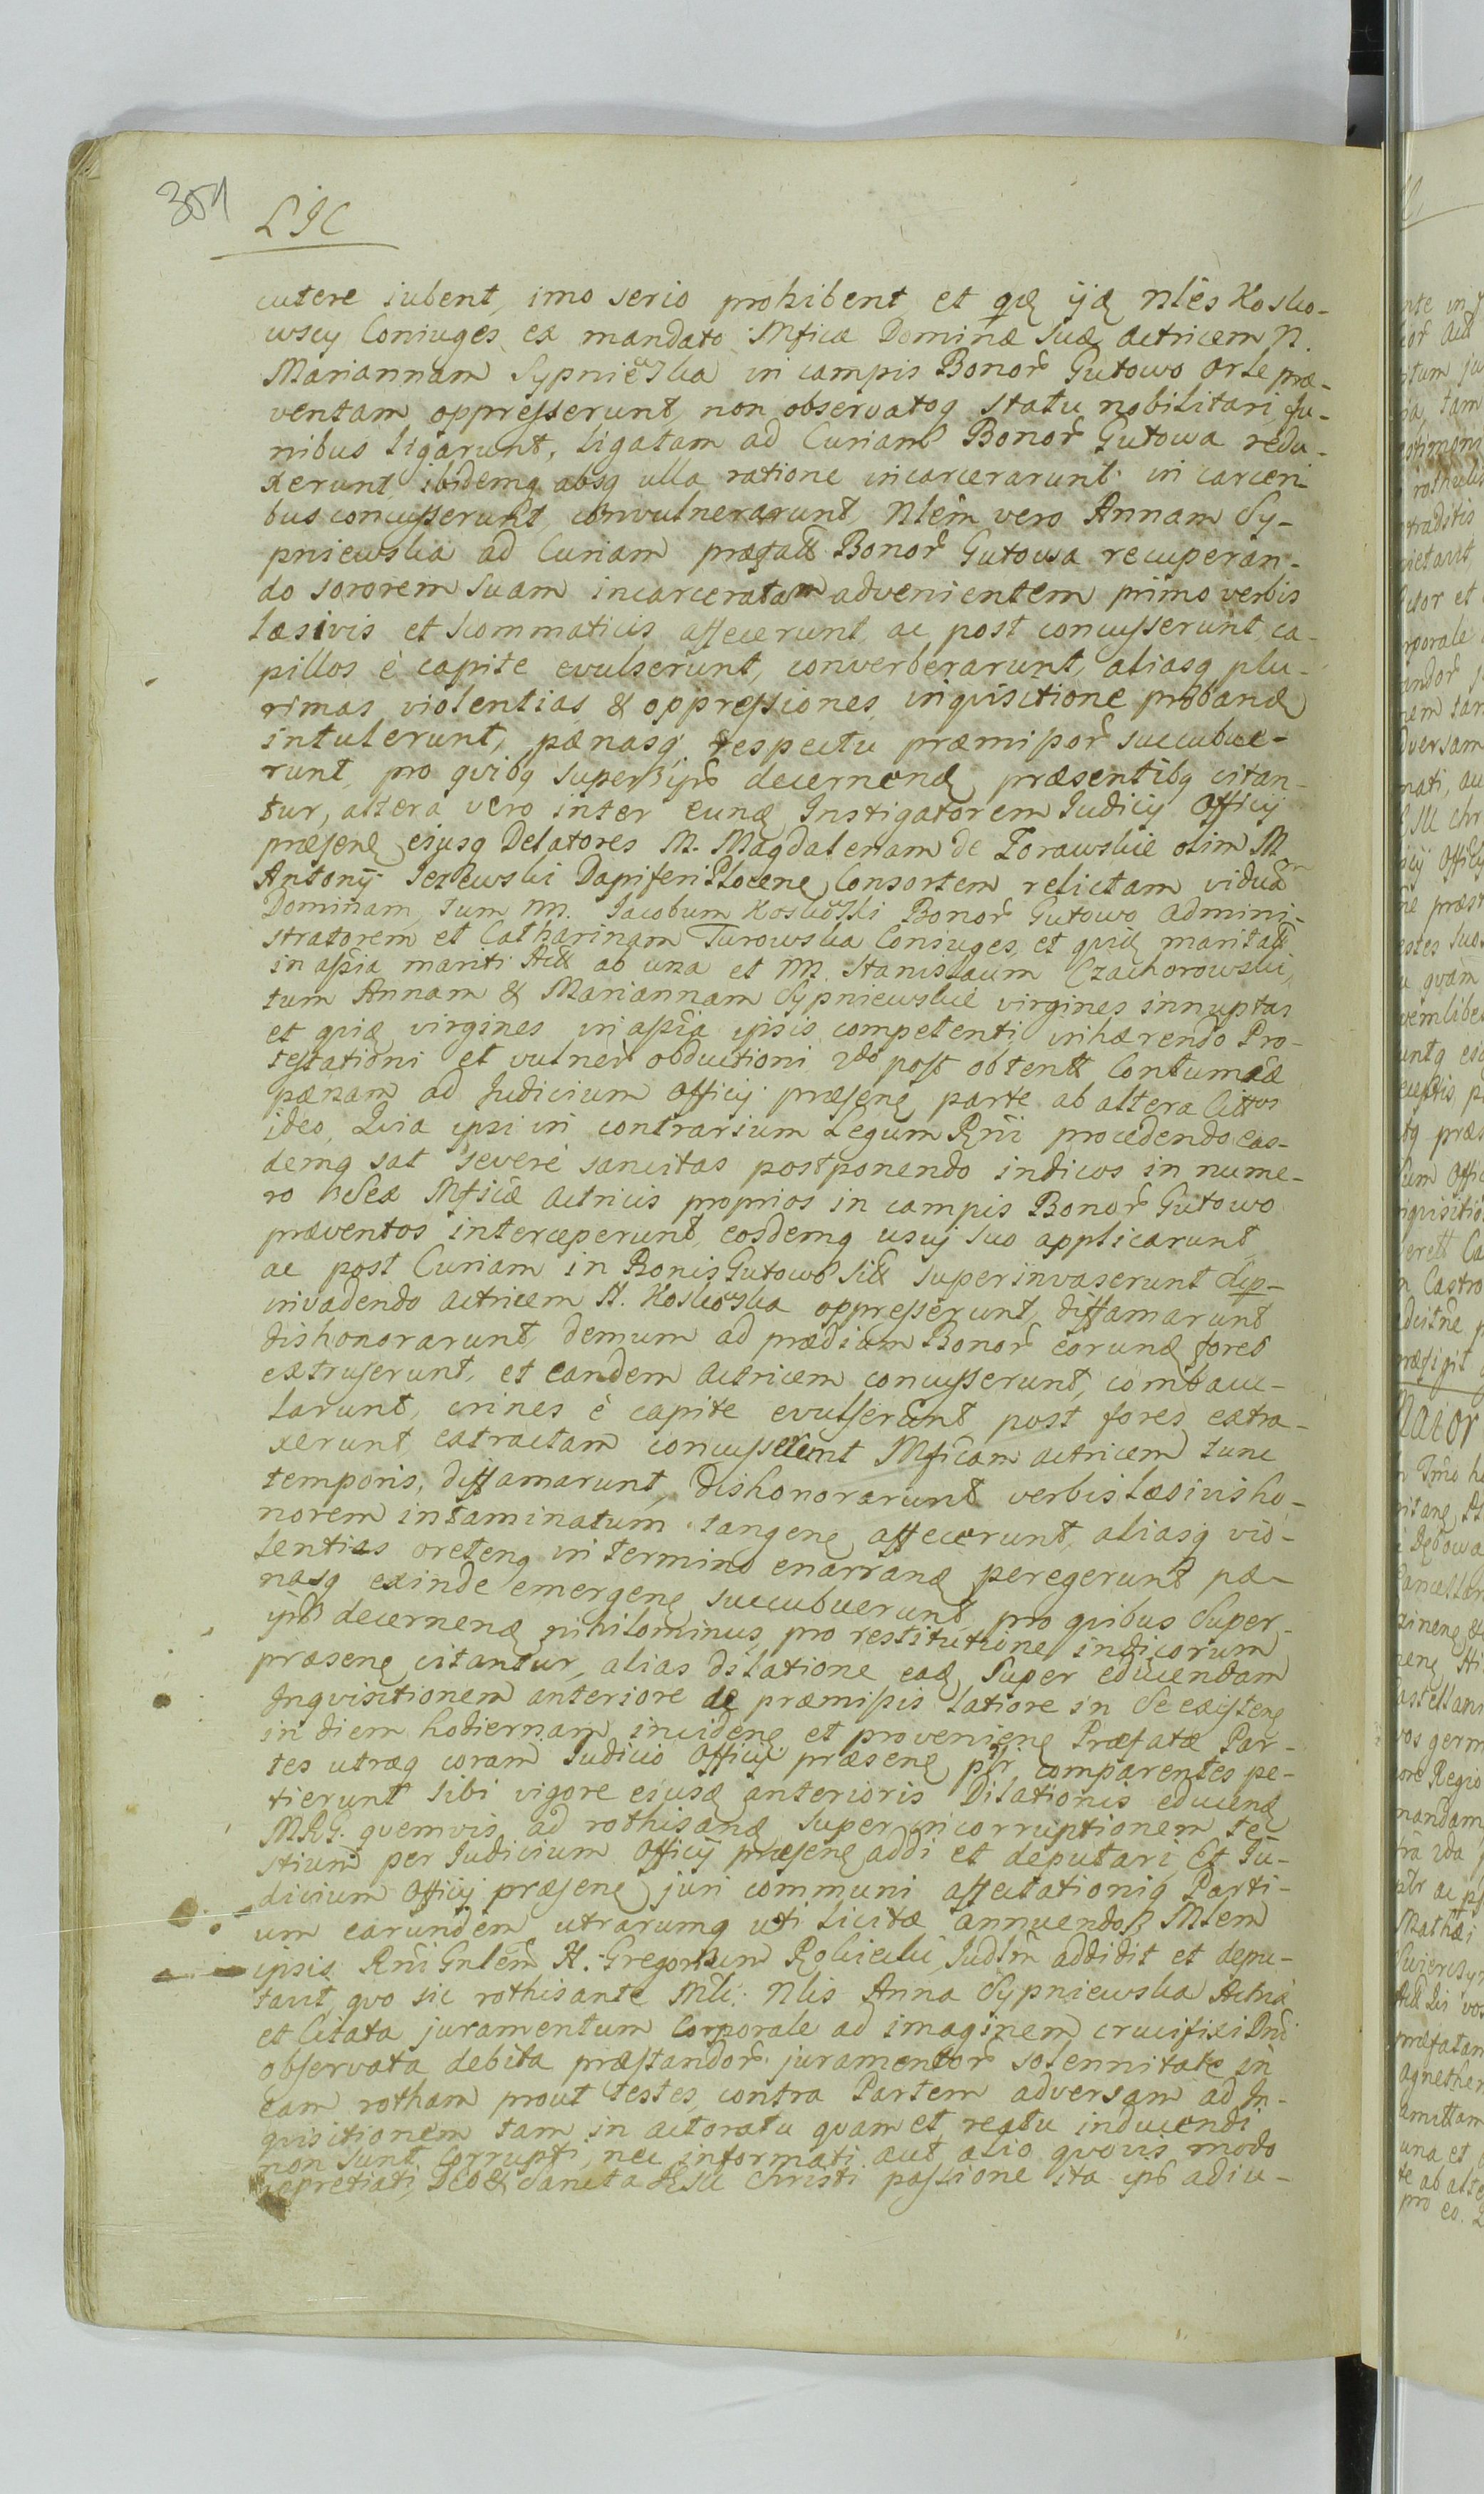 351
LIC
cutere iubent, imo serio prohibent et qd ijd Nles Kosko-
wscy Coniuges ex mandato Mficæ Dominæ suæ actricem N.
Mariannam Sypniewska in campis Bonor Gutowo orle præ-
ventam oppresserunt, non observatoq statu nobilitari fu-
nibus ligarunt, ligatam ad Curiam Bonor Gutowa redu-
xerunt, ibidemq absq ulla ratione incarcerarunt in carceri-
bus concusserunt, convulnerarunt, Nlem vero Annam Sy-
pniewska ad Curiam præfatt Bonor Gutowa recuperan-
do sororem suam incarceratam advenientem primo verbis
læsivis et scommaticis affecerunt, ac post concusserunt, ca-
pillos è capite evulserunt, converberarunt, aliasq plu-
rimas violentias & oppressiones inquisitione proband
intulerunt, pænasq respectu præmissor succubue-
runt, pro quibq super ijs decernend præsentibq citan-
tur, altera vero inter eund Instigatorem Iudicij Officij
præsens ejusq Delatores M. Magdalenam de Zorawskie olim M
Antonij Jezewski Dapiferi Plocens Consortem relictam viduam
Dominam, tum NN. Iacobum Koskowski Bonor Gutowo admini-
stratorem et Catharinam Turowska Coniuges, et quid maritatt
in assia mariti Act ab una et NN. Stanislaum Czachorowski,
tum Annam & Mariannam Sypniewskie virgines innuptas
et quid virgines in assia ipsis competenti inhærendo Pro-
testationi et vulner obductioni 2do post obtentt Contumciæ
pænam ad Iudicium Officij præsens parte ab altera Cittos
ideo, Quia ipsi in contrarium Legum Rni procedendo eas-
demq sat severè sancitas postponendo indicos in nume-
ro Mficæ actricis proprios in campis Bonor Gutowo
præventos interceperunt, eosdemq usuj suo applicarunt,
ac post Curiam in Bonis Gutowo sitt superinvaserunt
invadendo actricem N. Koskowska oppresserunt, diffamarunt
dishonorarunt, demum ad prædium Bonor eorund fores
extruserunt, et eandem actricem concusserunt, combacu-
larunt, crines è capite evulserunt post fores extra-
xerunt, extractam concusserunt Mficam actricem tunc
temporis, diffamarunt, dishonorarunt verbis læsivis ho-
norem intaminatum tangens affecerunt, aliasq vio-
lentias oretenq in termino enarrand peregerunt pæ-
nasq exinde emergens succubuerunt, pro quibus super
ipsis decernend nihilominus pro restitutione indicorum
præsens citantur, alias dilatione ead super educendam
Inquisitionem anteriore de præmissis latiore in se existens
in diem hodiernam incidens et proveniens Præfatæ Par-
tes utræq coram Iudicio Officij præsens pltr comparentes pe-
tierunt sibi vigore ejusd anterioris Dilationis educend
MRG. quemvis ad rothisand super incorruptionem te-
stium per Iudicium Officij præsens addi et deputari Et Iu-
dicium Officij præsens juri communi affectationiq Parti-
um earundem utrarumq uti licitæ annuendo Mlem
ipsis Rni Gnlem N. Gregorium Rokicki, Iudlm addidit et depu-
tavit, quo sic rothisante Mlt. Nlis Anna Sypniewska Actrix
et Citata juramentum Corporale ad imaginem crucifixi Dni
observata debita præstandor juramentor solennitate in
eam rotham prout testes, contra Partem adversam ad In-
quisitionem tam in actoratu quam et reatu inducendi
non sunt Corrupti, nec informati aut alio quovis modo
appretiati, Deo & Sancta IESU Christi passione ita ipso adiu-